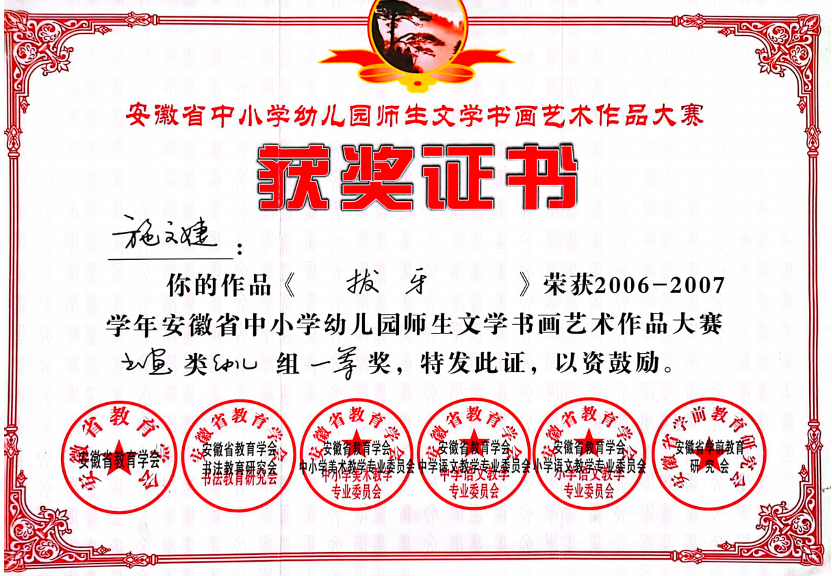 安徽省中小学幼儿园师生文学书画艺术作品大赛
获奖证书
施文婕：
你的作品《拔牙》荣获2006-2007
学年安徽省中小学幼儿园师生文学书画艺术作品大赛
书画类幼儿组一等奖，特发此证，以资鼓励。
安徽省教育学会
安徽省教育学会
安徽省教育学会
安徽省教育学会
书法教育研究会
书法教育研究会
安徽省教育学会
安徽省教育学会
中小学美术教学专业委员会
中小学美术教学
专业委员会
安徽省教育学会
安徽省教育学会
中学语文教学专业委员会
中学语文教学
专业委员会
安徽省教育学会
安徽省教育学会
小学语文教学专业委员会
小学语文教学
专业委员会
安徽省学前教育研究会
安徽省学前教育
研究会